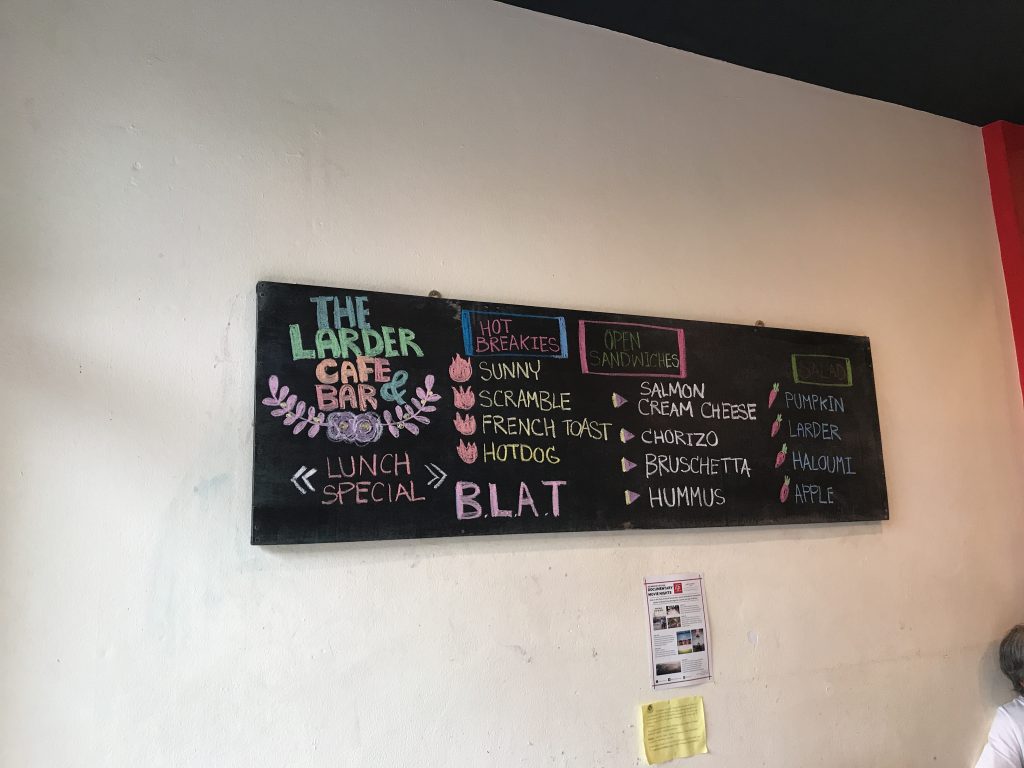 THE
LARDER
CAFE &
BAR
LUNCH
SPECIAL
HOT
BREAKIES
SUNNY
SCRAMBLE
FRENCH TOAST
HOTDOG
B.L.A.T
OPEN
SANDWICHES
SALMON
CREAM CHEESE
CHORIZO
BRUSCHETTA
HUMMUS
SALAD
PUMPKIN
LARDER
HALOUMI
APPLE
DOCUMENTARY
MOVIE NIGHTS